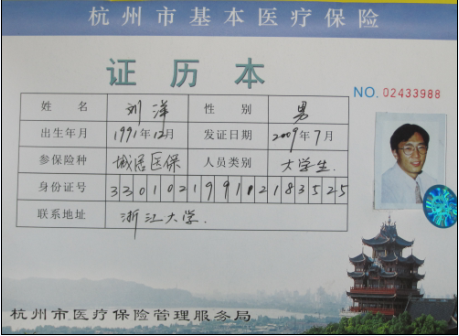 杭州市基本医疗保险
证历本
NO. 02433988
姓名 刘洋 性别 男
出生年月 1991年12月 发证日期 2009年7月
参保险种 城居医保 人员类别 大学生
身份证号 330102199102183525
联系地址 浙江大学.
杭州市医疗保险管理服务局